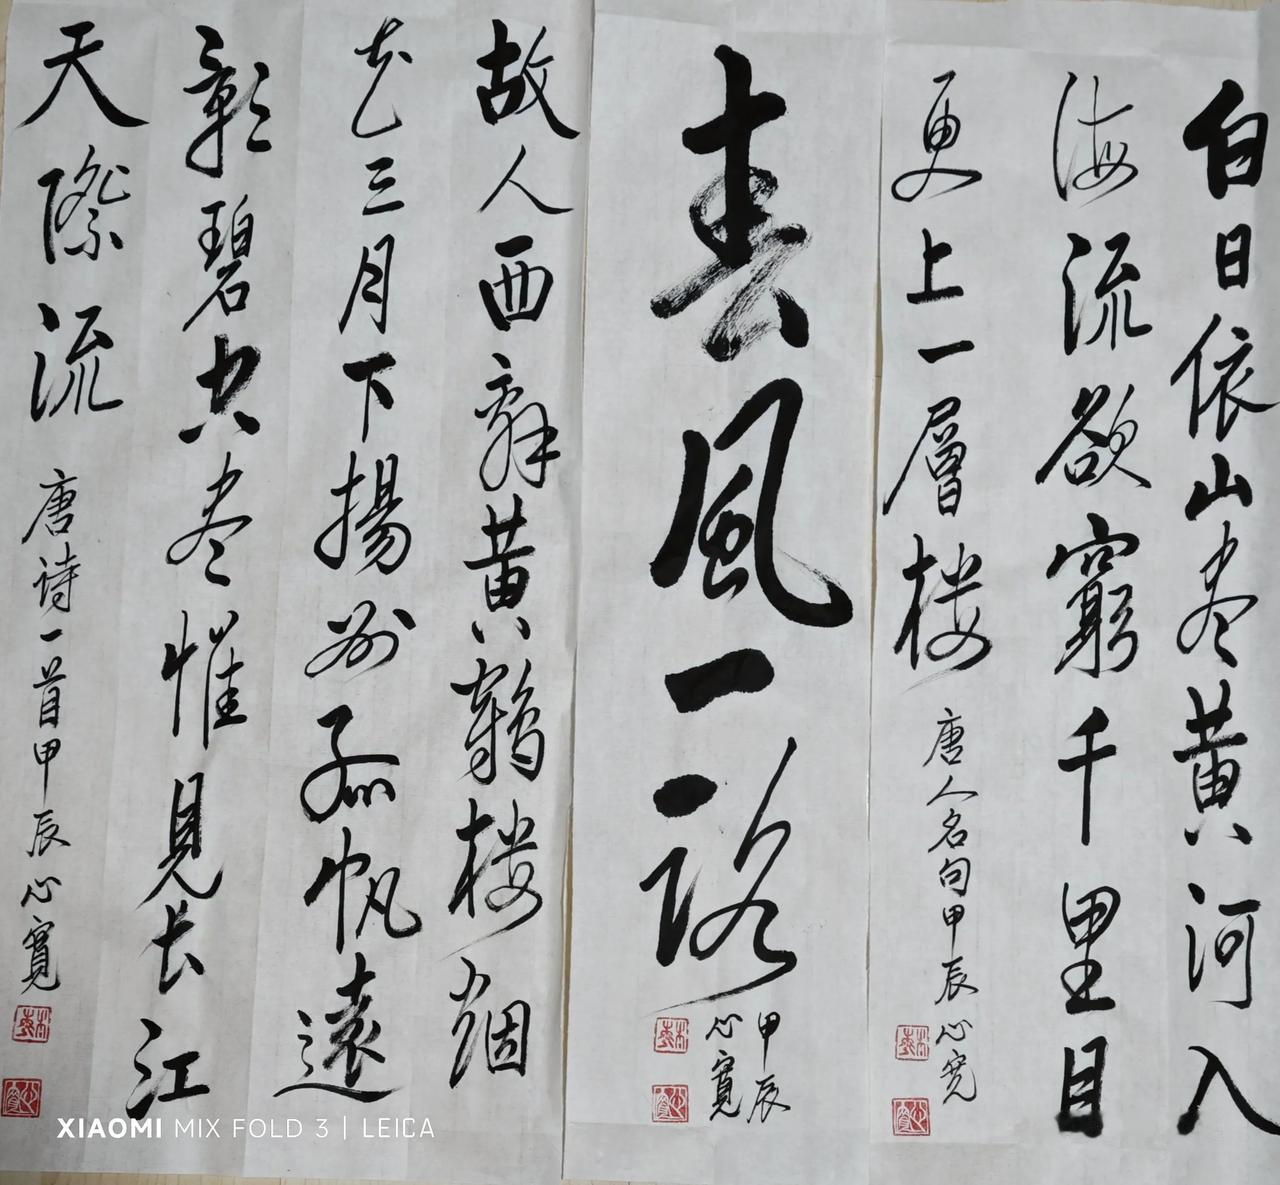 白日依山尽黄河入
海流欲窮千里目
更上一層楼
唐人名句甲辰心宽
春風一路
甲辰
心寬
故人西辭黄鶴楼烟
花三月下揚州孤帆遠
影碧空尽惟見长江
天際流
唐诗一首甲辰心寬
XIAOMI MIX FOLD 3 | LEICA